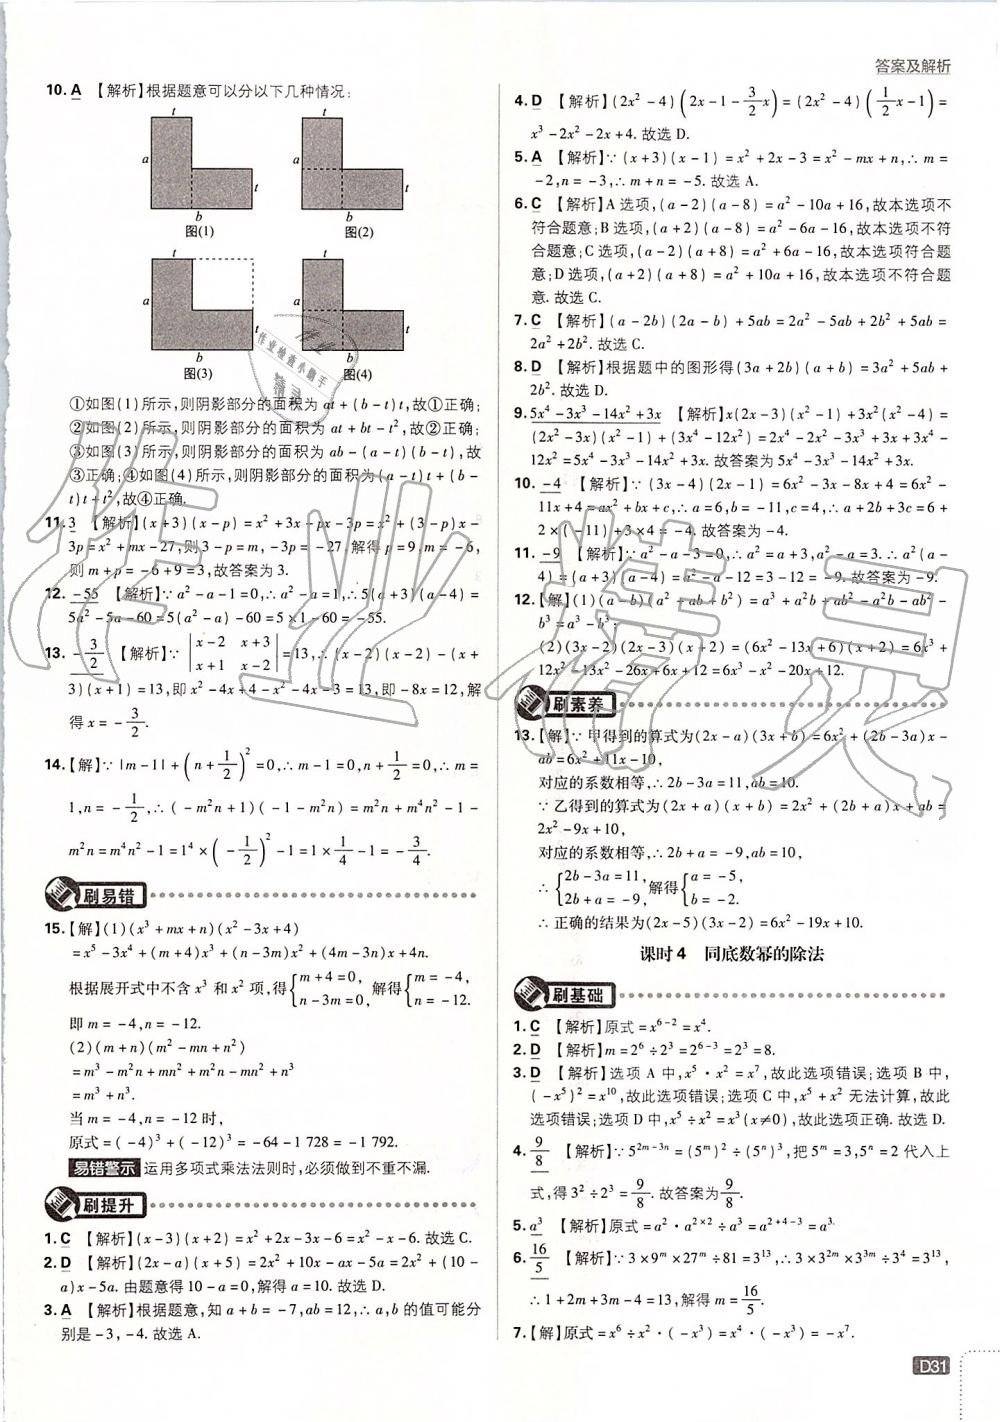 答案及解析
10. A 【解析】根据题意可以分以下几种情况:
t
t
a
t
b
图(1)
a
t
b
图(2)
a
t
b
图(3)
a
t
b
图(4)
①如图(1)所示,则阴影部分的面积为 at+(b-t)t,故①正确;
②如图(2)所示,则阴影部分的面积为 at+bt-t²,故②正确;
③如图(3)所示,则阴影部分的面积为 ab-(a-t)(b-t),故
③正确;④如图(4)所示,则阴影部分的面积为(a-t)t+(b-
t)t+t²,故④正确.
11. 3 【解析】(x+3)(x-p)=x²+3x-px-3p=x²+(3-p)x-
3p=x²+mx-27,则3-p=m,-3p=-27,解得p=9,m=-6,
则m+p=-6+9=3,故答案为3.
12. -55 【解析】∵a²-a-1=0,∴a²-a=1,∴5(a+3)(a-4)=
5a²-5a-60=5(a²-a)-60=5×1-60=-55.
13. -3/2 【解析】∵ |x-2 x+3; x+1 x-2| =13,∴(x-2)(x-2)-(x+
3)(x+1)=13,即x²-4x+4-x²-4x-3=13,即-8x=12,解
得x=-3/2.
14.【解】∵|m-1|+(n+1/2)²=0,∴m-1=0,n+1/2=0,∴m=
1,n=-1/2,∴(-m²n+1)(-1-m²n)=m²n+m⁴n²-1-
m²n=m⁴n²-1=1⁴×(-1/2)²-1=1×1/4-1=-3/4.
刷易错
15.【解】(1)(x³+mx+n)(x²-3x+4)
=x⁵-3x⁴+(m+4)x³+(n-3m)x²+(4m-3n)x+4n.
根据展开式中不含x³和x²项,得{m+4=0, n-3m=0,解得{m=-4, n=-12.
即m=-4,n=-12.
(2)(m+n)(m²-mn+n²)
=m³-m²n+mn²+m²n-mn²+n³
=m³+n³.
当m=-4,n=-12时,
原式=(-4)³+(-12)³=-64-1 728=-1 792.
易错警示 运用多项式乘法法则时,必须做到不重不漏.
刷提升
1. C 【解析】(x-3)(x+2)=x²+2x-3x-6=x²-x-6.故选C.
2. D 【解析】(2x-a)(x+5)=2x²+10x-ax-5a=2x²+(10-
a)x-5a.由题意得10-a=0,解得a=10.故选D.
3. A 【解析】根据题意,知a+b=-7,ab=12,∴a,b的值可能分
别是-3,-4.故选A.
4. D 【解析】(2x²-4)(2x-1-3/2x)=(2x²-4)(1/2x-1)=
x³-2x²-2x+4.故选D.
5. A 【解析】∵(x+3)(x-1)=x²+2x-3=x²-mx+n,∴m=
-2,n=-3,∴m+n=-5.故选A.
6. C 【解析】A选项,(a-2)(a-8)=a²-10a+16,故本选项不
符合题意;B选项,(a+2)(a-8)=a²-6a-16,故本选项不符
合题意;C选项,(a-2)(a+8)=a²+6a-16,故本选项符合题
意;D选项,(a+2)(a+8)=a²+10a+16,故本选项不符合题
意.故选C.
7. C 【解析】(a-2b)(2a-b)+5ab=2a²-5ab+2b²+5ab=
2a²+2b².故选C.
8. D 【解析】根据题中的图形得(3a+2b)(a+b)=3a²+5ab+
2b².故选D.
9. 5x⁴-3x³-14x²+3x 【解析】x(2x-3)(x²-1)+3x²(x²-4)=
(2x²-3x)(x²-1)+(3x⁴-12x²)=2x⁴-2x²-3x³+3x+3x⁴-
12x²=5x⁴-3x³-14x²+3x.故答案为5x⁴-3x³-14x²+3x.
10. -4 【解析】∵(3x-4)(2x-1)=6x²-3x-8x+4=6x²-
11x+4=ax²+bx+c,∴a=6,b=-11,c=4,∴a+2b+3c=6+
2×(-11)+3×4=-4.故答案为-4.
11. -9 【解析】∵a²-a-3=0,∴a²=a+3,a²-a=3,∴a²(a-
4)=(a+3)(a-4)=a²-a-12=3-12=-9.故答案为-9.
12.【解】(1)(a-b)(a²+ab+b²)=a³+a²b+ab²-a²b-ab²-
b³=a³-b³;
(2)(3x-2)(2x-3)(x+2)=(6x²-13x+6)(x+2)=6x³+
12x²-13x²-26x+6x+12=6x³-x²-20x+12.
刷素养
13.【解】∵甲得到的算式为(2x-a)(3x+b)=6x²+(2b-3a)x-
ab=6x²+11x-10,
对应的系数相等,∴2b-3a=11,ab=10.
∵乙得到的算式为(2x+a)(x+b)=2x²+(2b+a)x+ab=
2x²-9x+10,
对应的系数相等,∴2b+a=-9,ab=10,
∴{2b-3a=11, 2b+a=-9,解得{a=-5, b=-2.
∴正确的结果为(2x-5)(3x-2)=6x²-19x+10.
课时4 同底数幂的除法
刷基础
1. C 【解析】原式=x⁶⁻²=x⁴.
2. D 【解析】m=2⁶÷2³=2⁶⁻³=2³=8.
3. D 【解析】选项A中,x⁵·x²=x⁷,故此选项错误;选项B中,
(-x⁵)²=x¹⁰,故此选项错误;选项C中,x⁵+x²无法计算,故此
选项错误;选项D中,x⁵÷x²=x³(x≠0),故此选项正确.故选D.
4. 9/8 【解析】∵5²ᵐ⁻³ⁿ=(5ᵐ)²÷(5ⁿ)³,把5ᵐ=3,5ⁿ=2代入上
式,得3²÷2³=9/8.故答案为9/8.
5. a³ 【解析】原式=a²·a²ˣ²÷a³=a²⁺⁴⁻³=a³.
6. 16/5 【解析】∵3×9ᵐ×27ᵐ÷81=3¹³,∴3×3²ᵐ×3³ᵐ÷3⁴=3¹³,
∴1+2m+3m-4=13,解得m=16/5.
7.【解】原式=x⁶÷x²·(-x³)=x⁴·(-x³)=-x⁷.
D31
作业检查小助手
作业精灵